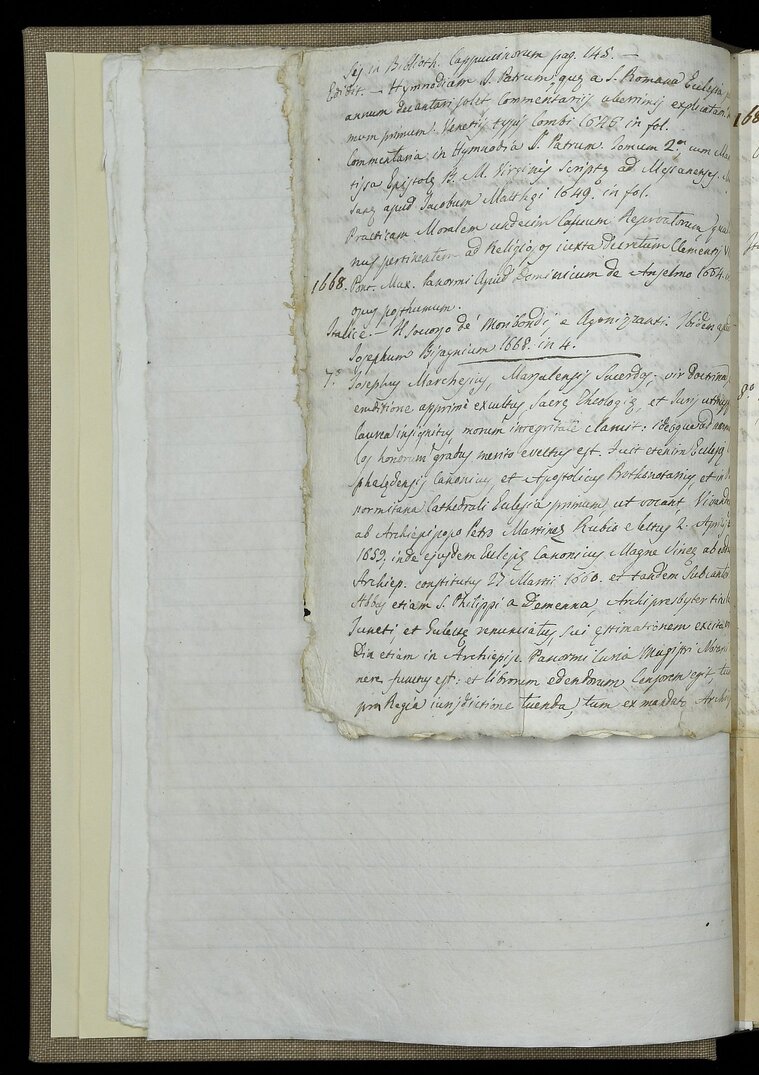 sis in Biblioth. Cappuccinorum pag. 148. —
Edidit. — Hymnodiam S. Patrum, quę a S. Romana Ecclesia
annum decantari solet Commentarijs uberrimis explicatam
mum primum. Venetijs typis Combi 1646. in fol.
Commentaria in Hymnodia S. Patrum. Tomum 2.um cum
tissa Epistolę B. M. Virginis Scriptę ad Messanenses.
sanę apud Jacobum Matthęi 1649. in fol.
Practicam Moralem undecim Casuum Reservatorum,
nus pertinentem ad Religiosos iuxta decretum Clementis
1668. Pont. Max. Panormi Apud Dominicum de Anselmo 1664.
opus posthumum.
Italice — Il Socorso de' Moribondi, e Agonizzanti. Ibidem
Josephum Bisagnium 1668. in 4.
7.° Josephus Marchesius, Marsalensis Sacerdos, vir doctrina,
eruditione apprimè excultus, Sacrę Theologię, et Juris
laurea insignitus, morum integritate claruit: ideoque ad
los honorum gradus merito evectus est. Fuit etenim Ecclesię
phalędensis Canonicus, et Apostolicus Prothonotarius, et in
normitana Cathedrali Ecclesia primum, ut vocant,
ab Archiepiscopo Petro Martinez Rubio electus 2. Aprilis
1659. inde ejusdem Ecclesię Canonicus Magne Sinez ab
Archiep. constitutus 27 Martii 1660. et tandem Subcantor
Abbas etiam S. Philippi a Demenna, Archipresbyter
Juneti, et Ecclesię renunciatus, sui ęstimationem
Diu etiam in Archiepisc. Panormi Curia Magistri
nere functus est: et librorum edendorum Censorem egit,
pro Regia iurisdictione tuenda, tum ex mandato
168
8°